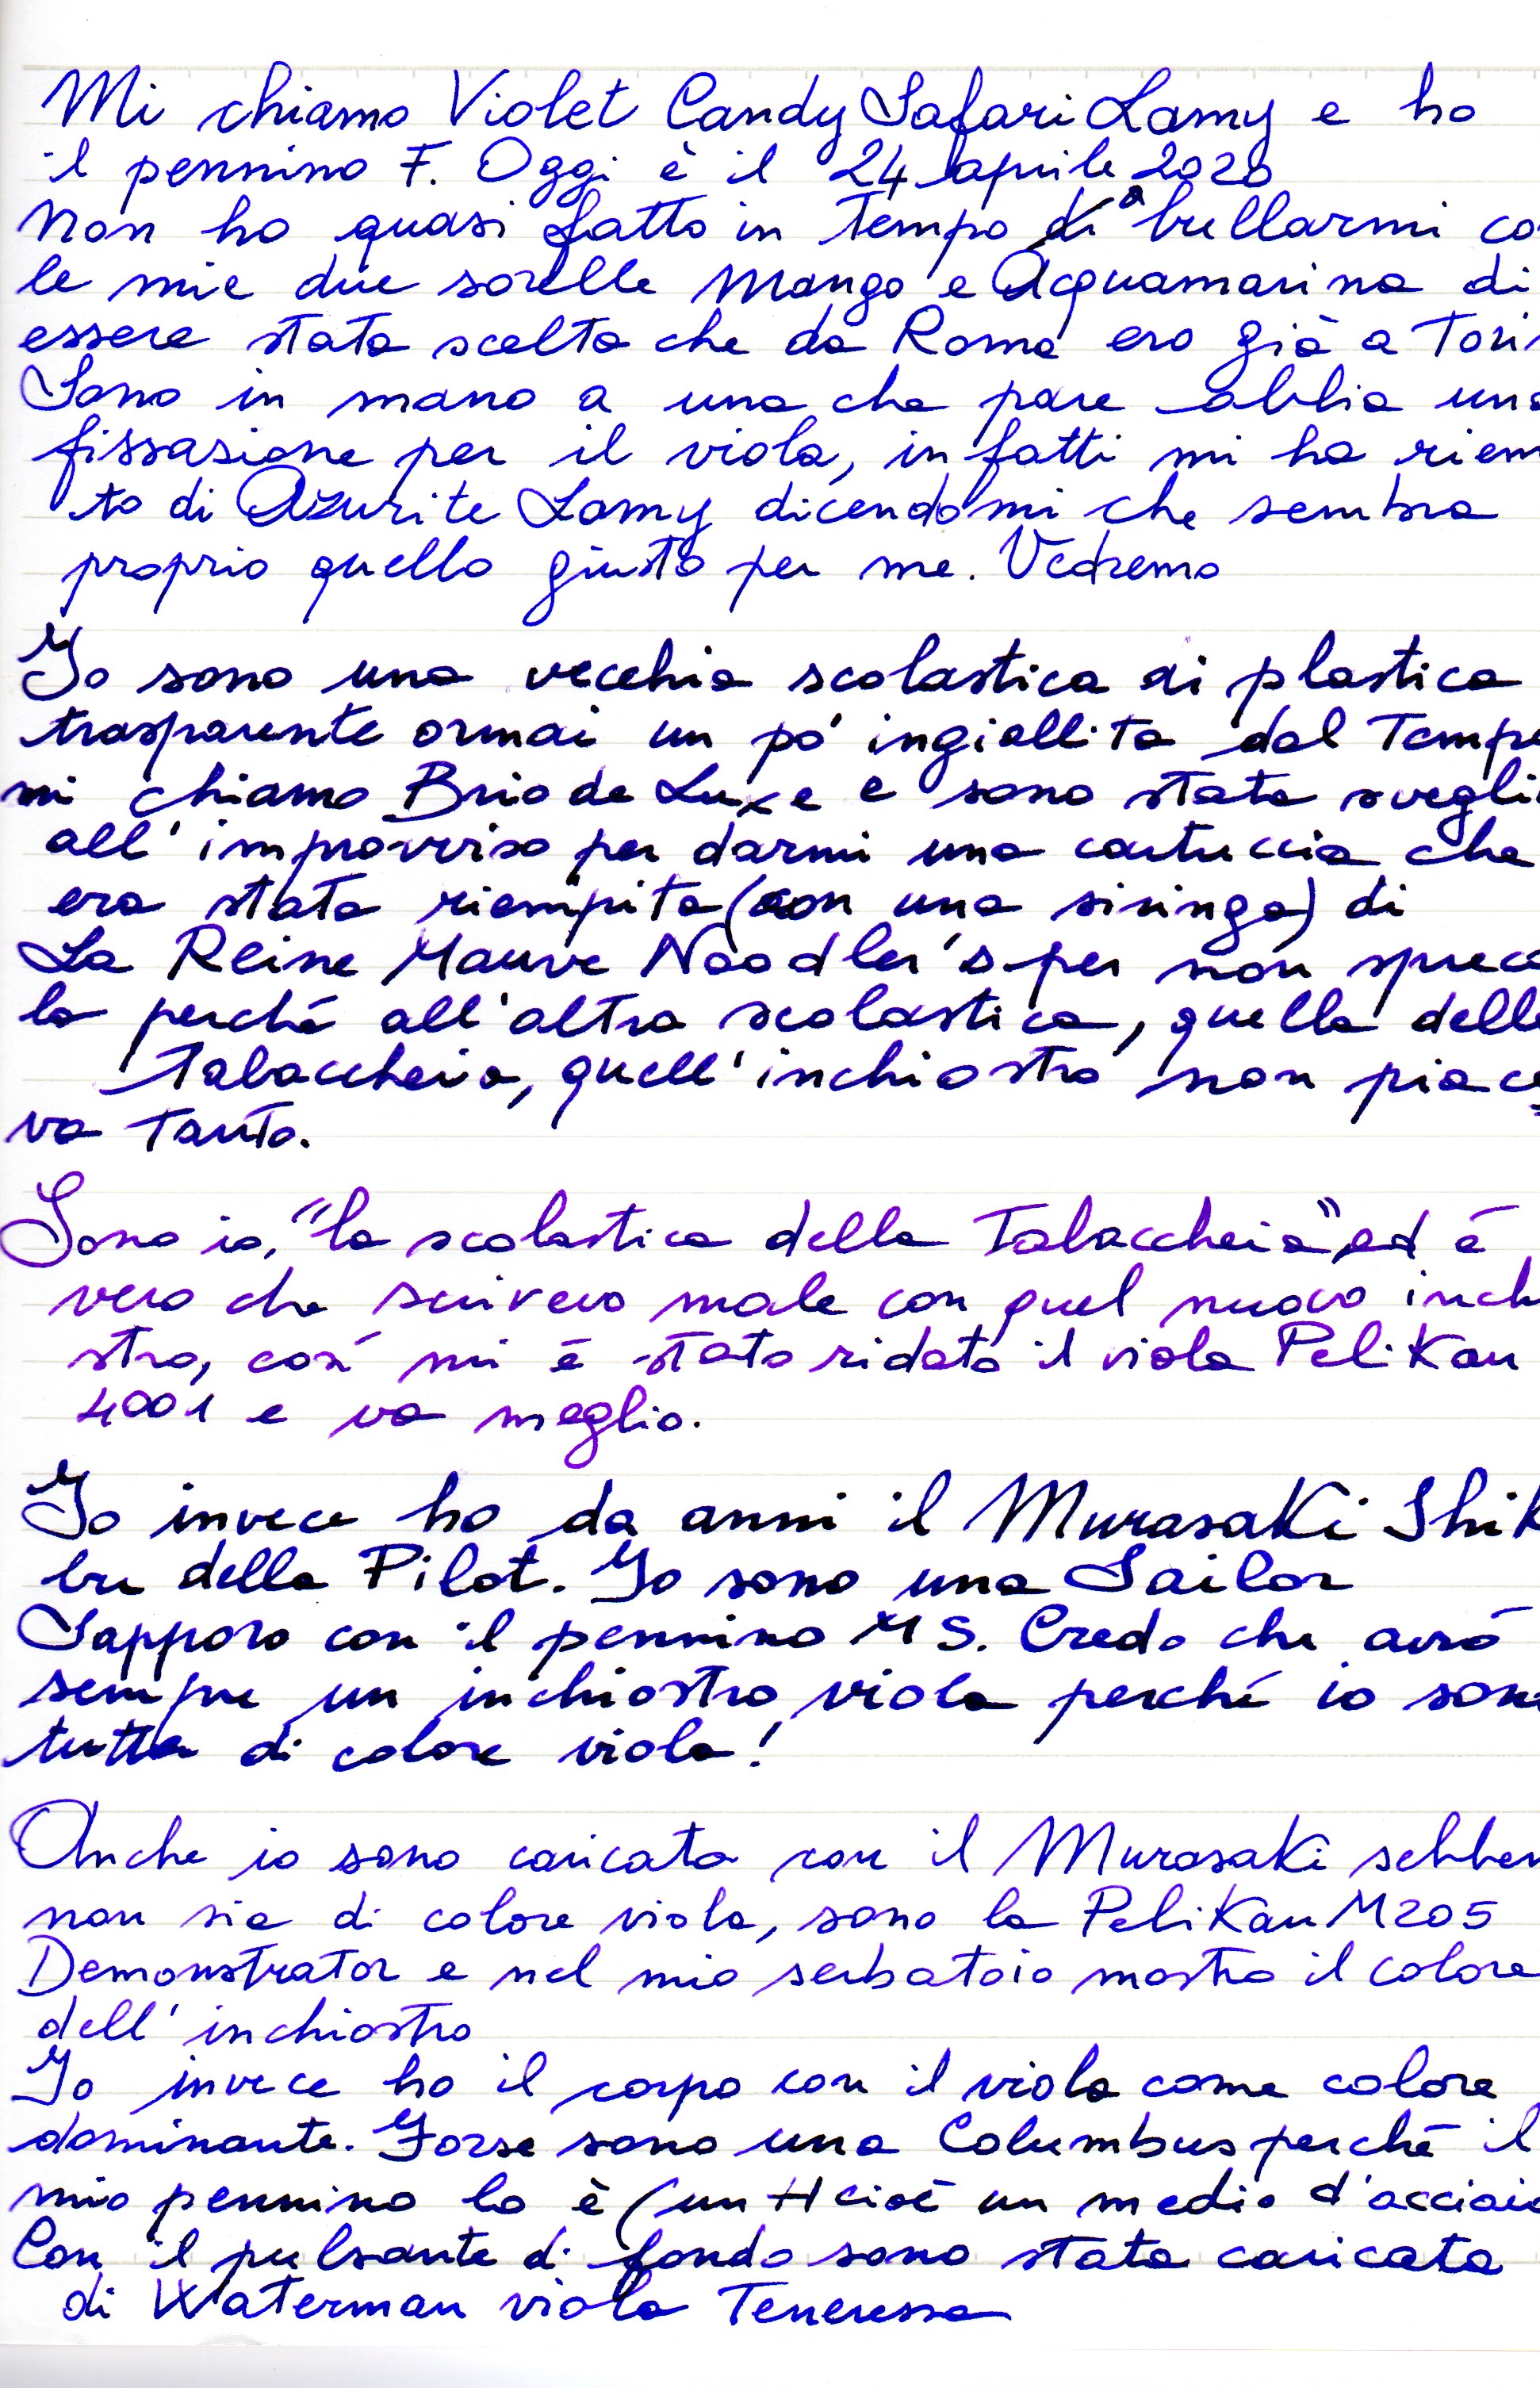 Mi chiamo Violet Candy Safari Lamy e ho
il pennino F. Oggi è il 24 aprile 2020
Non ho quasi fatto in tempo a bullarmi co
le mie due sorelle Mango e Acquamarina di
essere stata scelta che da Roma ero già a Tori
Sono in mano a una che pare abbia una
fissazione per il viola, infatti mi ha riem
to di Azurite Lamy dicendomi che sembra
proprio quello giusto per me. Vedremo
Io sono una vecchia scolastica di plastica
trasparente ormai un pò ingiallita dal Tempo
mi chiamo Brio de Luxe e sono stata svegli
all'improvviso per darmi una cartuccia che
era stata riempita (con una siringa) di
La Reine Mauve Noodler's per non spreca
la perché all'altra scolastica, quella della
Tabaccheria, quell'inchiostro non piace
va tanto.
Sono io, "la scolastica della Tabaccheria" ed è
vero che scrivevo male con quel nuovo inch
stro, così mi è stato ridato il viola Pelikan
4001 e va meglio.
Io invece ho da anni il Murasaki Shik
bu della Pilot. Io sono una Sailor
Sapporo con il pennino MS. Credo che avrò
sempre un inchiostro viola perché io sono
tutta di colore viola!
Anche io sono caricata con il Murasaki sebben
non sia di colore viola, sono la Pelikan M205
Demonstrator e nel mio serbatoio mostro il colore
dell'inchiostro
Io invece ho il corpo con il viola come colore
dominante. Forse sono una Columbus perché il
mio pennino lo è (un H cioè un medio d'acciaio
Con il pulsante di fondo sono stata caricata
di Waterman viola Tenerezza